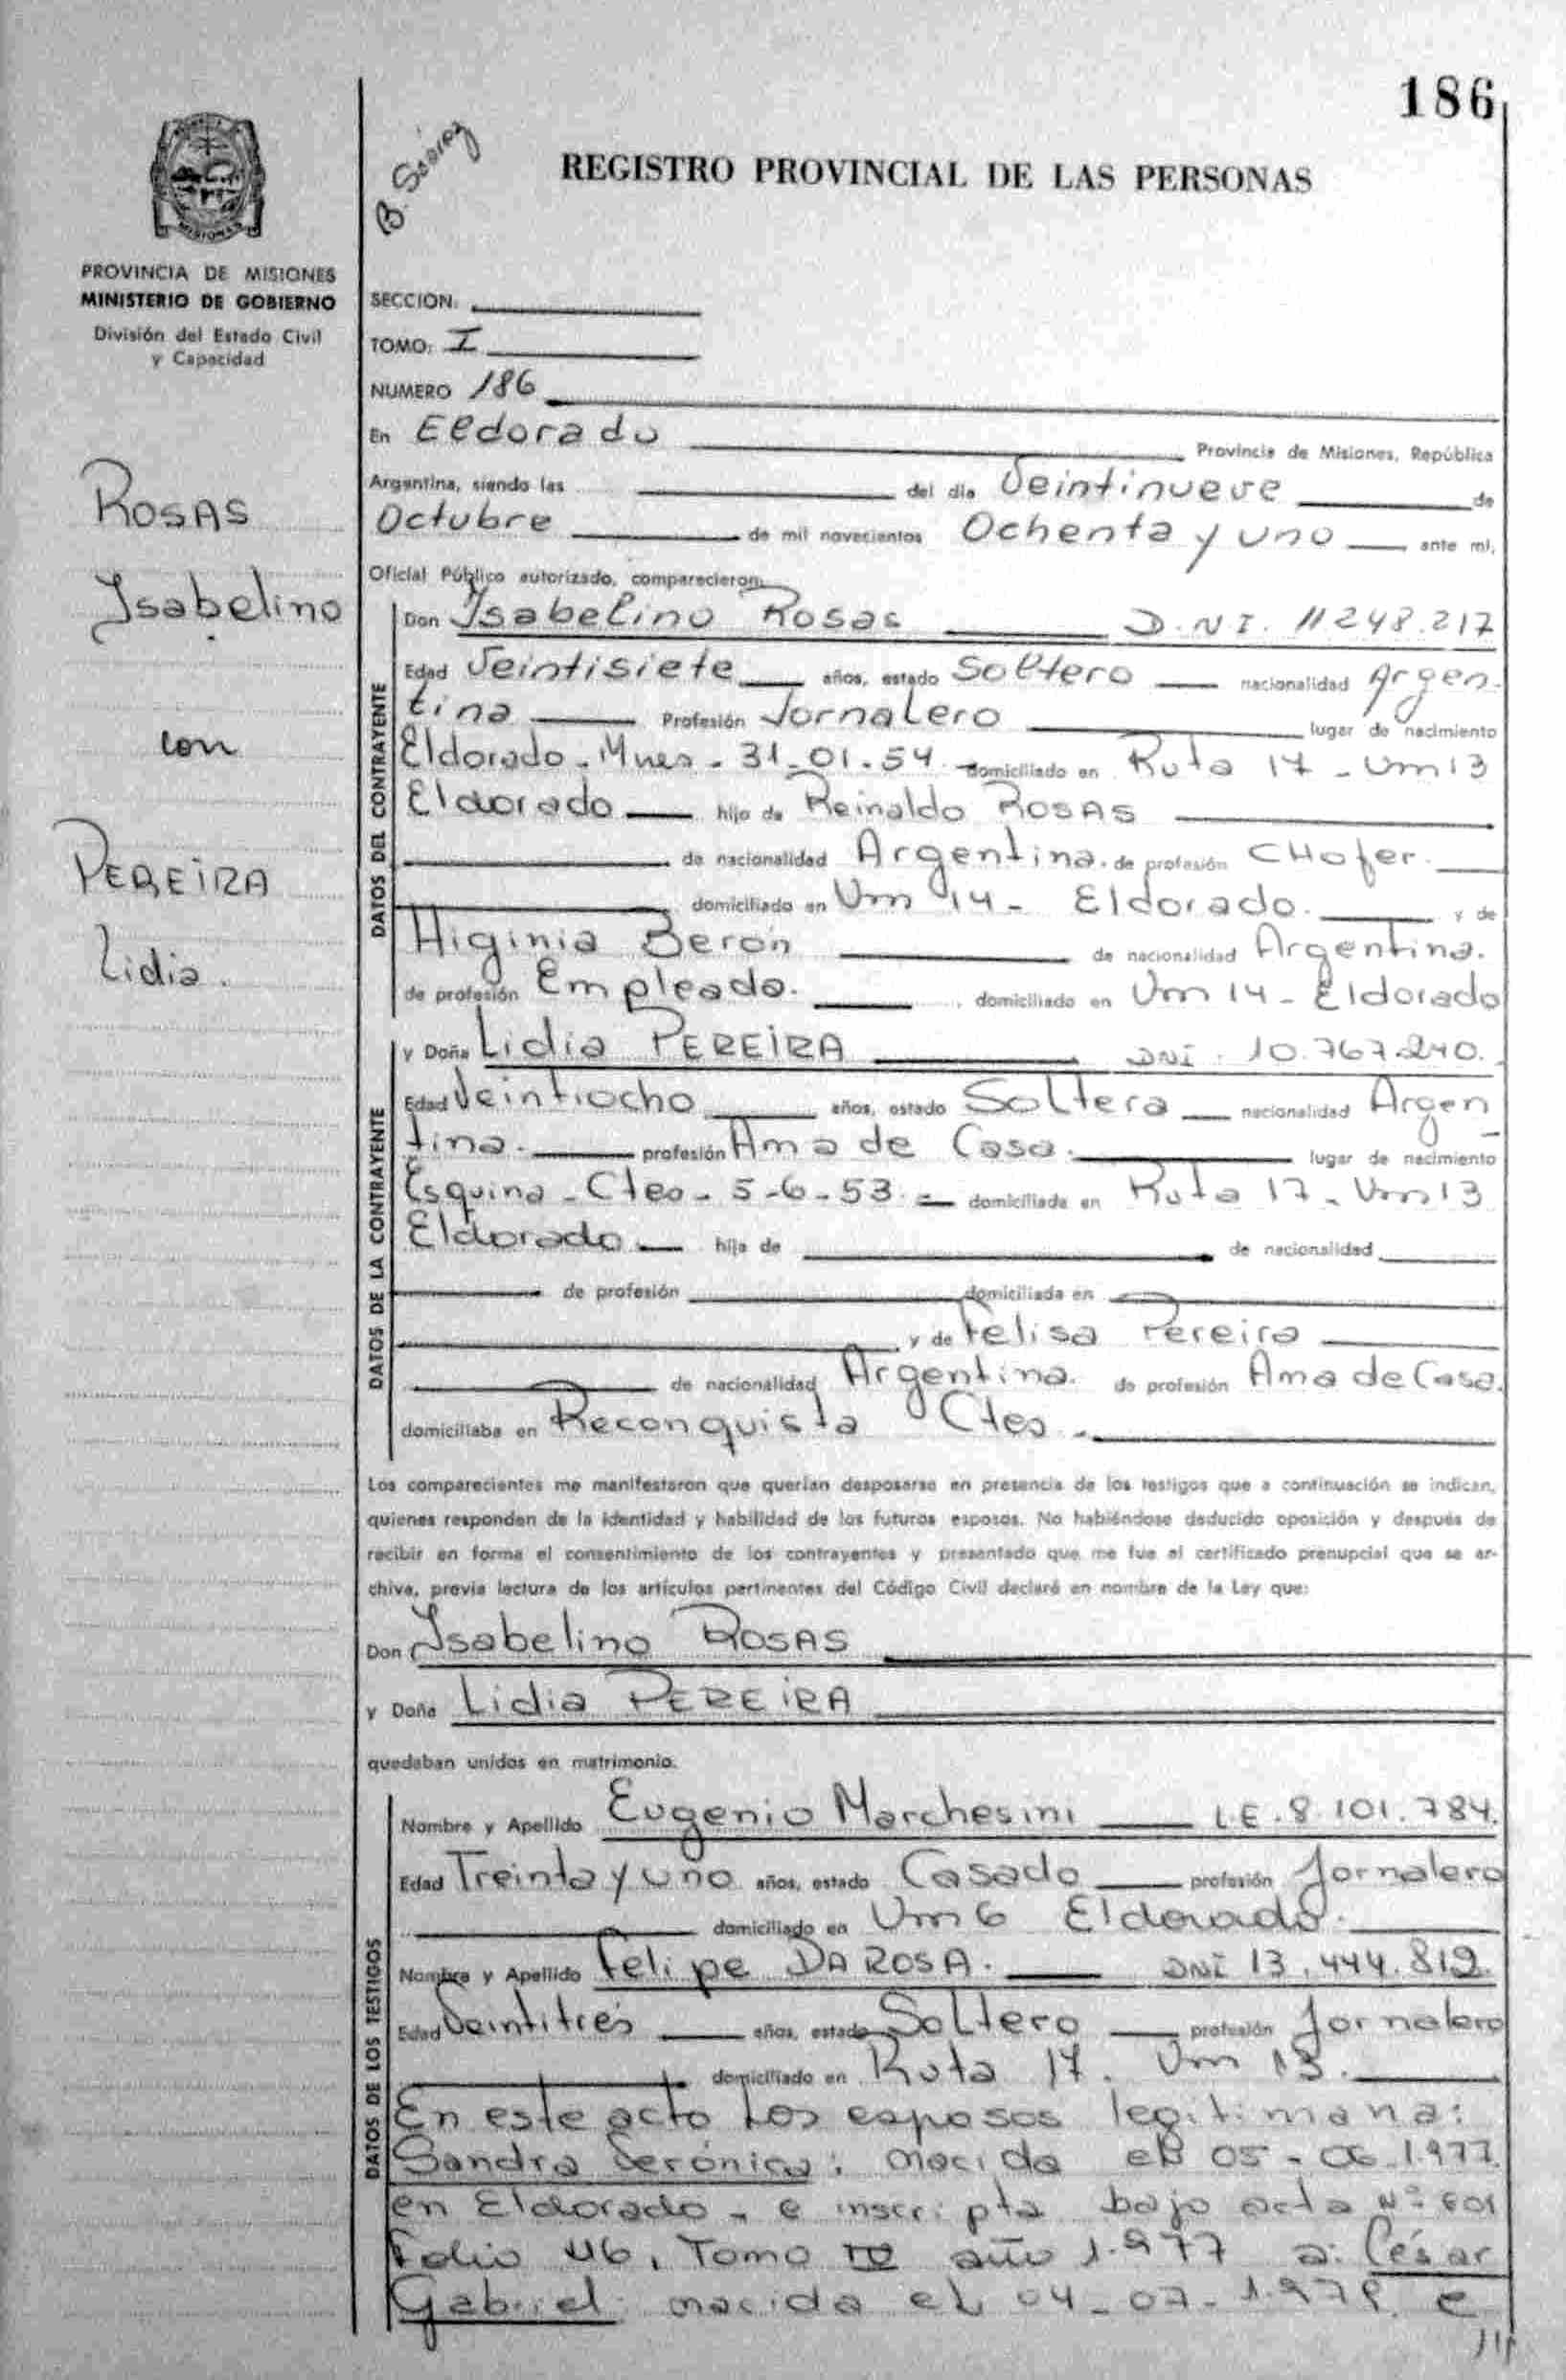 186
REGISTRO PROVINCIAL DE LAS PERSONAS
MISIONES
PROVINCIA DE MISIONES
MINISTERIO DE GOBIERNO
División del Estado Civil
y Capacidad
ROSAS
Isabelino
con
PEREIRA
Lidia.
SECCION:
TOMO: I
NUMERO 186
En Eldorado Provincia de Misiones, República
Argentina, siendo las del día Veintinueve de
Octubre de mil novecientos Ochenta y uno ante mí,
Oficial Público autorizado, comparecieron:
DATOS DEL CONTRAYENTE
Don Isabelino Rosas D.N.I. 11248.217
Edad Veintisiete años, estado Soltero nacionalidad Argen-
tina Profesión Jornalero lugar de nacimiento
Eldorado - Mnes - 31-01-54 domiciliado en Ruta 17 - Km 13
Eldorado hijo de Reinaldo ROSAS
de nacionalidad Argentina. de profesión CHofer.
domiciliado en Km 14 - Eldorado. y de
Higinia Beron de nacionalidad Argentina.
de profesión Empleada. domiciliado en Km 14 - Eldorado
DATOS DE LA CONTRAYENTE
y Doña Lidia PEREIRA DNI. 10.767.240.
Edad Veintiocho años, estado Soltera nacionalidad Argen
tina. profesión Ama de Casa. lugar de nacimiento
Esquina - Ctes - 5-6-53 domiciliada en Ruta 17 - Km 13
Eldorado hija de de nacionalidad
de profesión domiciliada en
y de Felisa Pereira
de nacionalidad Argentina. de profesión Ama de Casa.
domiciliaba en Reconquista Ctes.
Los comparecientes me manifestaron que querían desposarse en presencia de los testigos que a continuación se indican,
quienes responden de la identidad y habilidad de los futuros esposos. No habiéndose deducido oposición y después de
recibir en forma el consentimiento de los contrayentes y presentado que me fue el certificado prenupcial que se ar-
chiva, previa lectura de los artículos pertinentes del Código Civil declaré en nombre de la Ley que:
Don Isabelino ROSAS
y Doña Lidia PEREIRA
quedaban unidos en matrimonio.
DATOS DE LOS TESTIGOS
Nombre y Apellido Eugenio Marchesini L.E. 8.101.784.
Edad Treinta y uno años, estado Casado profesión Jornalero
domiciliado en Km 6 Eldorado.
Nombre y Apellido Felipe DA ROSA. DNI 13.444.812.
Edad Veintitres años, estado Soltero profesión Jornalero
domiciliado en Ruta 17. Km 13.
En este acto los esposos legitiman a:
Sandra Verónica: nacida el 05-06-1.977
en Eldorado - e inscripta bajo acta Nº 601
Folio 46, Tomo IV año 1.977 a: César
Gabriel nacida el 04-07-1.979 e
///